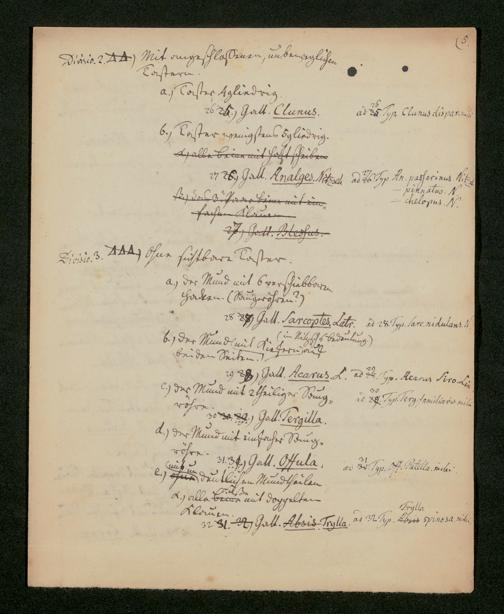 (5.
Divisio. 2. AA) Mit angeschlossenen, unbeweglichen
Tastern.
a.) Taster 4gliedrig.
26 25.) Gatt. Clunus. ad 26 Typ Clunus dispar. mihi
b.) Taster wenigstens 5gliedrig.
α) alle Beine mit Haftscheiben
27 26) Gatt. Analges. Nitzsch ad 27 Typ An. passerinus Nitzsch
— pinnatus. N.
— chelopus. N.
fachen Klauen
27) Gatt. Blephus.
Divisio. 3. AAA) Ohne sichtbare Taster.
a.) der Mund mit 6 verschiebbaren
Haken. (Saugröhren?)
28 Gatt. Sarcoptes. Latr. ad 28. Typ. Sarc. nidulans. N
(in Nitzsch's Bedeutung)
b.) der Mund mit Kiefern auf
beiden Seiten.
29 Gatt. Acarus L. ad 29 Typ. Acarus Siro Lin
c.) der Mund mit 2theiliger Saug-
röhre.
30 Gatt. Tergilla. ad 30 Typ. Terg. familiaris mihi
d.) der Mund mit einfacher Saug-
röhre.
31 Gatt. Offula. ad 31 Typ. Off. Patella. mihi
e.) ohne deutlichen Mundtheilen
α.) alle Beine mit doppelten
Klauen.
Trylla
32 31 Gatt. Absis Trylla. ad 32 Typ. spinosa mihi